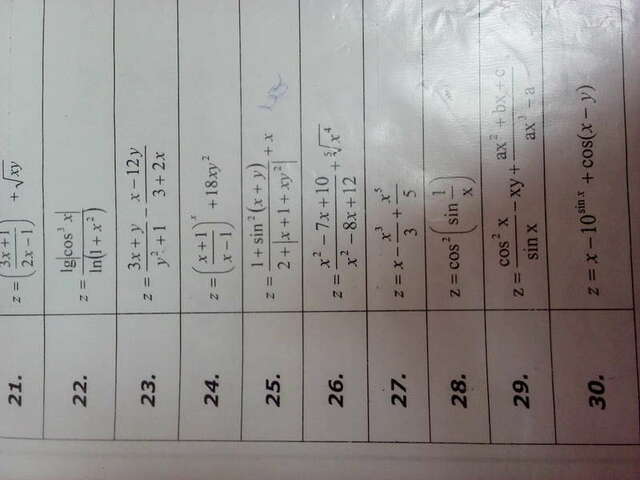 21. z = ((3x+1)/(2x−1)) + √xy
22. z = lg|cos³ x| / ln(1 + x²)
23. z = (3x + y)/(y² + 1) − (x − 12y)/(3 + 2x)
24. z = ((x+1)/(x−1))^x + 18xy²
25. z = (1 + sin²(x + y))/(2 + |x + 1 + xy²|) + x
26. z = (x² − 7x + 10)/(x² − 8x + 12) + ⁵√x⁴
27. z = x − x³/3 + x⁵/5
28. z = cos²(sin 1/x)
29. z = cos² x/sin x − xy + (ax² + bx + c)/(ax³ − a)
30. z = x − 10^(sin x) + cos(x − y)